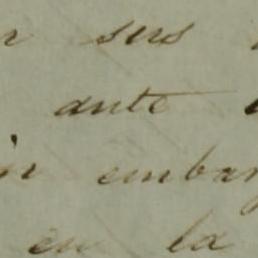 sus
ante
in embar
en la